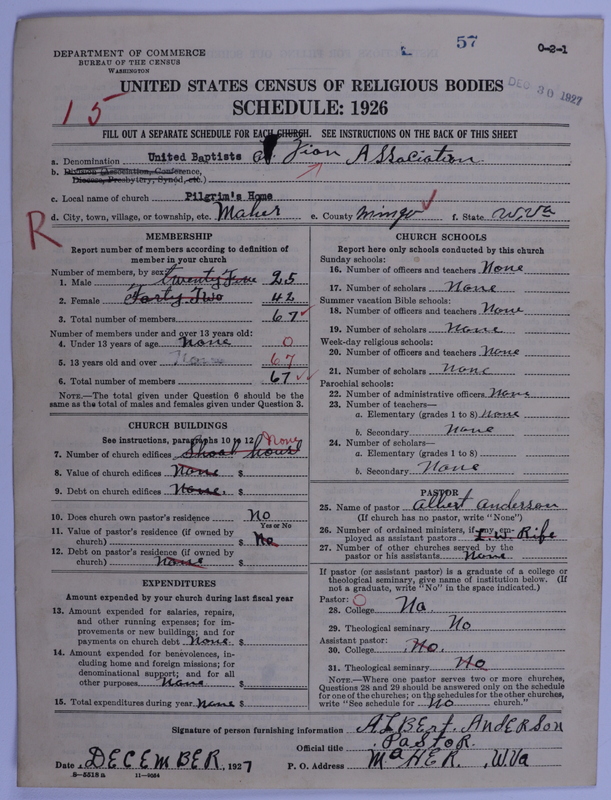 57
0-2-1
DEPARTMENT OF COMMERCE
BUREAU OF THE CENSUS
WASHINGTON
DEC 30 1927
UNITED STATES CENSUS OF RELIGIOUS BODIES
15
SCHEDULE: 1926
FILL OUT A SEPARATE SCHEDULE FOR EACH CHURCH. SEE INSTRUCTIONS ON THE BACK OF THIS SHEET
a. Denomination United Baptists Zion Association
b. Division (Association, Conference,
Diocese, Presbytery, Synod, etc.)
c. Local name of church Pilgrim's Home
d. City, town, village, or township, etc. Maher e. County Mingo f. State W.Va
R
MEMBERSHIP
Report number of members according to definition of
member in your church
Number of members, by sex:
1. Male twenty five 25
2. Female Forty Two 42
3. Total number of members 67
Number of members under and over 13 years old:
4. Under 13 years of age None 0
5. 13 years old and over 67
6. Total number of members 67
NOTE.—The total given under Question 6 should be
the same as the total of males and females given under Question 3.
CHURCH BUILDINGS
See instructions, paragraphs 10 to 12 None
7. Number of church edifices Shool house
8. Value of church edifices None $
9. Debt on church edifices None. $
10. Does church own pastor's residence No
Yes or No
11. Value of pastor's residence (if owned by
church) $ No
12. Debt on pastor's residence (if owned by
church) None $
EXPENDITURES
Amount expended by your church during last fiscal year
13. Amount expended for salaries, repairs,
and other running expenses; for im-
provements or new buildings; and for
payments on church debt None. $
14. Amount expended for benevolences, in-
cluding home and foreign missions; for
denominational support; and for all
other purposes None $
15. Total expenditures during year None $
CHURCH SCHOOLS
Report here only schools conducted by this church
Sunday schools:
16. Number of officers and teachers None
17. Number of scholars None
Summer vacation Bible schools:
18. Number of officers and teachers None
19. Number of scholars None
Week-day religious schools:
20. Number of officers and teachers None
21. Number of scholars None
Parochial schools:
22. Number of administrative officers None
23. Number of teachers—
a. Elementary (grades 1 to 8) None
b. Secondary None
24. Number of scholars—
a. Elementary (grades 1 to 8)
b. Secondary None
PASTOR
25. Name of pastor Albert Anderson
(If church has no pastor, write "None")
26. Number of ordained ministers, if any, em-
ployed as assistant pastors L.W. Rife
27. Number of other churches served by the
pastor or his assistants None
If pastor (or assistant pastor) is a graduate of a college or
theological seminary, give name of institution below. (If
not a graduate, write "No" in the space indicated.)
Pastor: 0
28. College No
29. Theological seminary No
Assistant pastor:
30. College No.
31. Theological seminary No
NOTE.—Where one pastor serves two or more churches,
Questions 28 and 29 should be answered only on the schedule
for one of the churches; on the schedules for the other churches,
write "See schedule for No church."
Signature of person furnishing information ALBERT. ANDERSON
Official title PASTOR.
Date DECEMBER, 1927 P. O. Address MAHER, W.Va
8-5518 a 11-9024